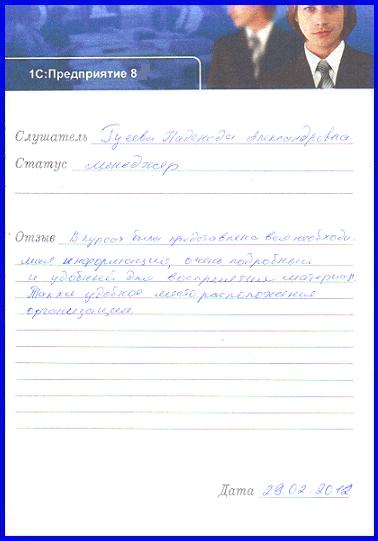 1С:Предприятие 8
Слушатель Гусева Надежда Александровна
Статус менеджер
Отзыв В курсах была представлена вся необходи-
мая информация, очень подробный
и удобный для восприятия материал.
Также удобное место расположения
организации.
Дата 29.02.2012